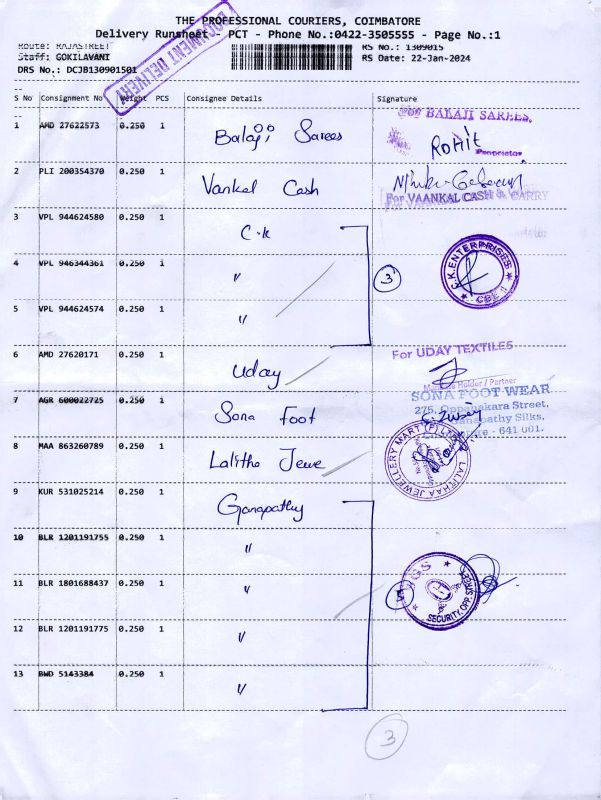 THE PROFESSIONAL COURIERS, COIMBATORE
Delivery Runsheet - PCT - Phone No.:0422-3505555 - Page No.:1
Route: RAJASTREET
RS No.: 1309015
Staff: GOKILAVANI
RS Date: 22-Jan-2024
DRS No.: DCJB130901501
DOCUMENT DELIVERY
S No Consignment No Weight PCS Consignee Details Signature
1 AMD 27622573 0.250 1 Balaji Sarees
For BALAJI SAREES,
Rohit
Proprietor
2 PLI 200354370 0.250 1 Vankal Cash
For VAANKAL CASH & CARRY
3 VPL 944624580 0.250 1 C.K
4 VPL 946344361 0.250 1 "
3
C.K.ENTERPRISES
5 VPL 944624574 0.250 1 "
6 AMD 27620171 0.250 1 Uday
For UDAY TEXTILES
Holder / Partner
7 AGR 600022725 0.250 1 Sona Foot
SONA FOOT WEAR
275, Oppanakara Street,
Ganapathy Silks,
Coimbatore - 641 001.
8 MAA 863260789 0.250 1 Lalitha Jewe
LALITHAA JEWELLERY MART (P) LTD
9 KUR 531025214 0.250 1 Ganapathy
10 BLR 1201191755 0.250 1 "
11 BLR 1801688437 0.250 1 "
5
SECURITY, OPP. STREET
12 BLR 1201191775 0.250 1 "
13 BWD 5143384 0.250 1 "
3